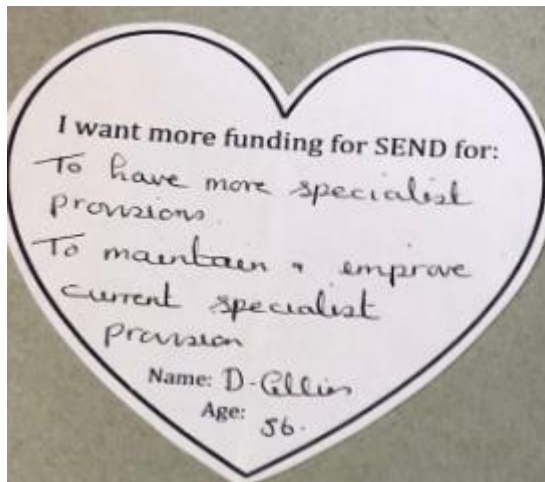 I want more funding for SEND for:
To have more specialist
provisions
To maintain & improve
current specialist
provision
Name: D-Collins
Age: 56.